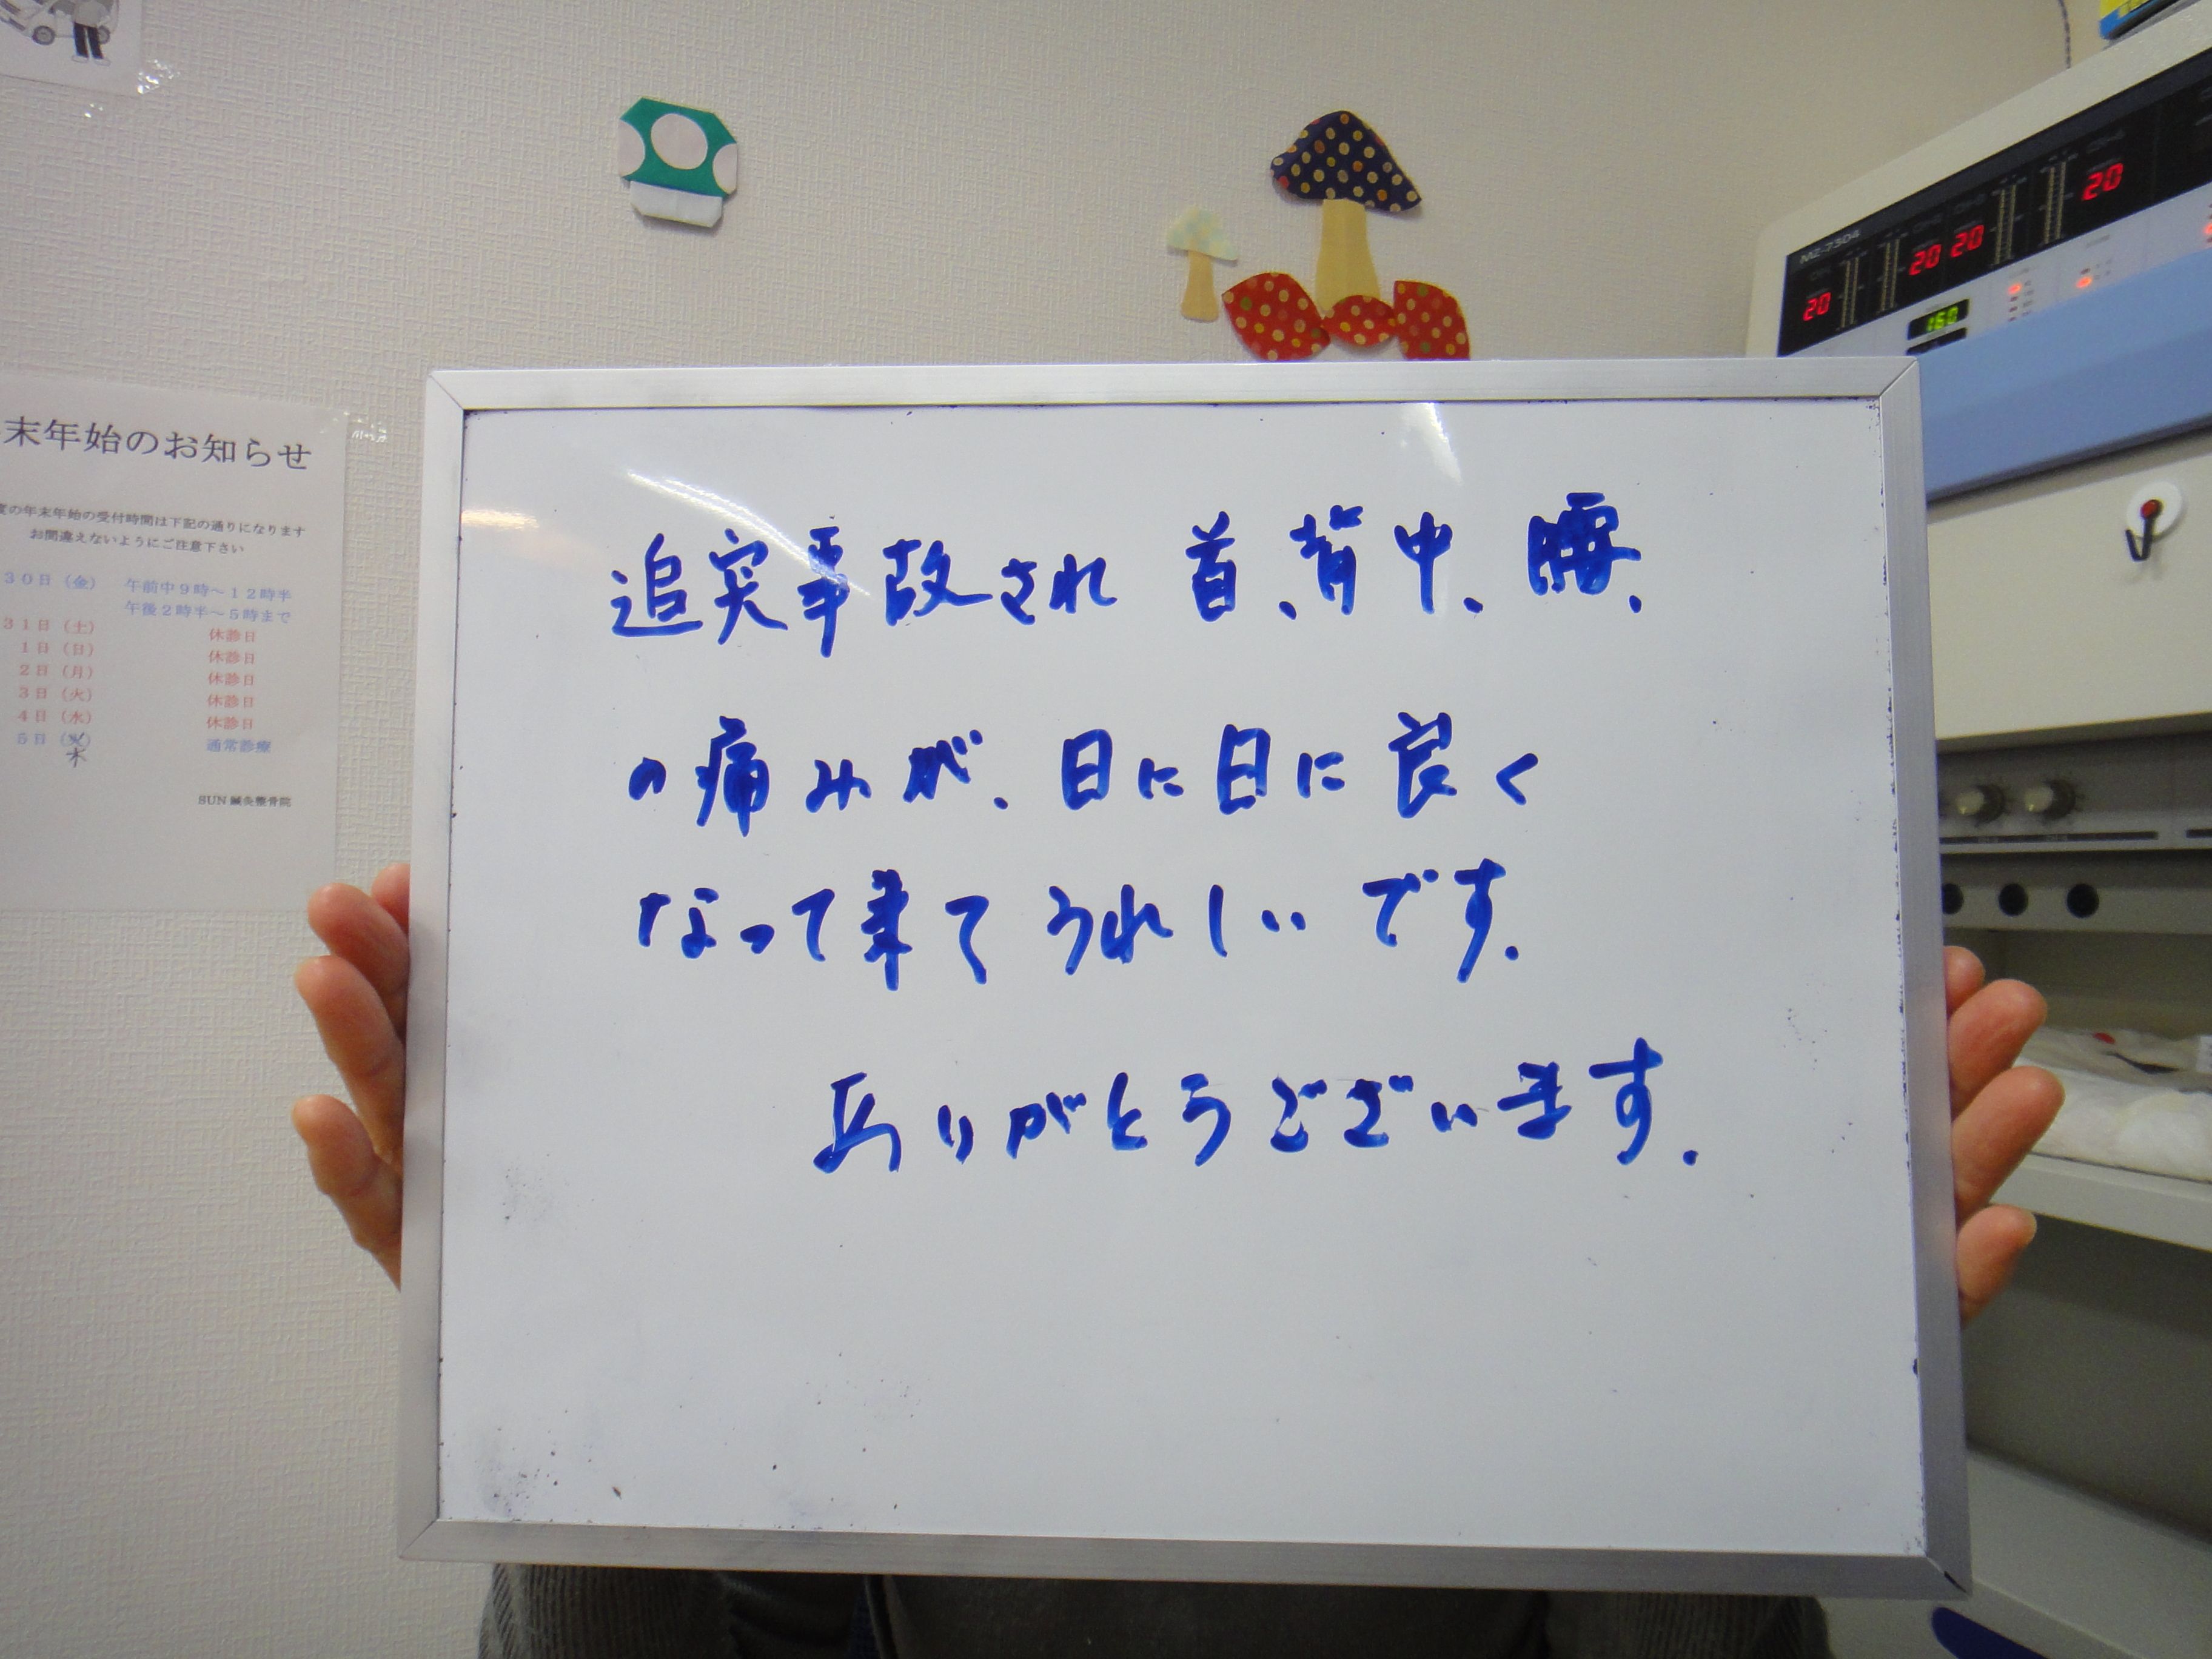 末年始のお知らせ
度の年末年始の受付時間は下記の通りになります
お間違えないようにご注意下さい
30日（金） 午前中9時～12時半
午後2時半～5時まで
31日（土） 休診日
1日（日） 休診日
2日（月） 休診日
3日（火） 休診日
4日（水） 休診日
5日（火） 通常診療
木
SUN鍼灸整骨院
追突事故され 首、背中、腰、
の痛みが、日に日に良く
なって来てうれしいです.
ありがとうございます.
MZ-7304
20
20 20
20
160